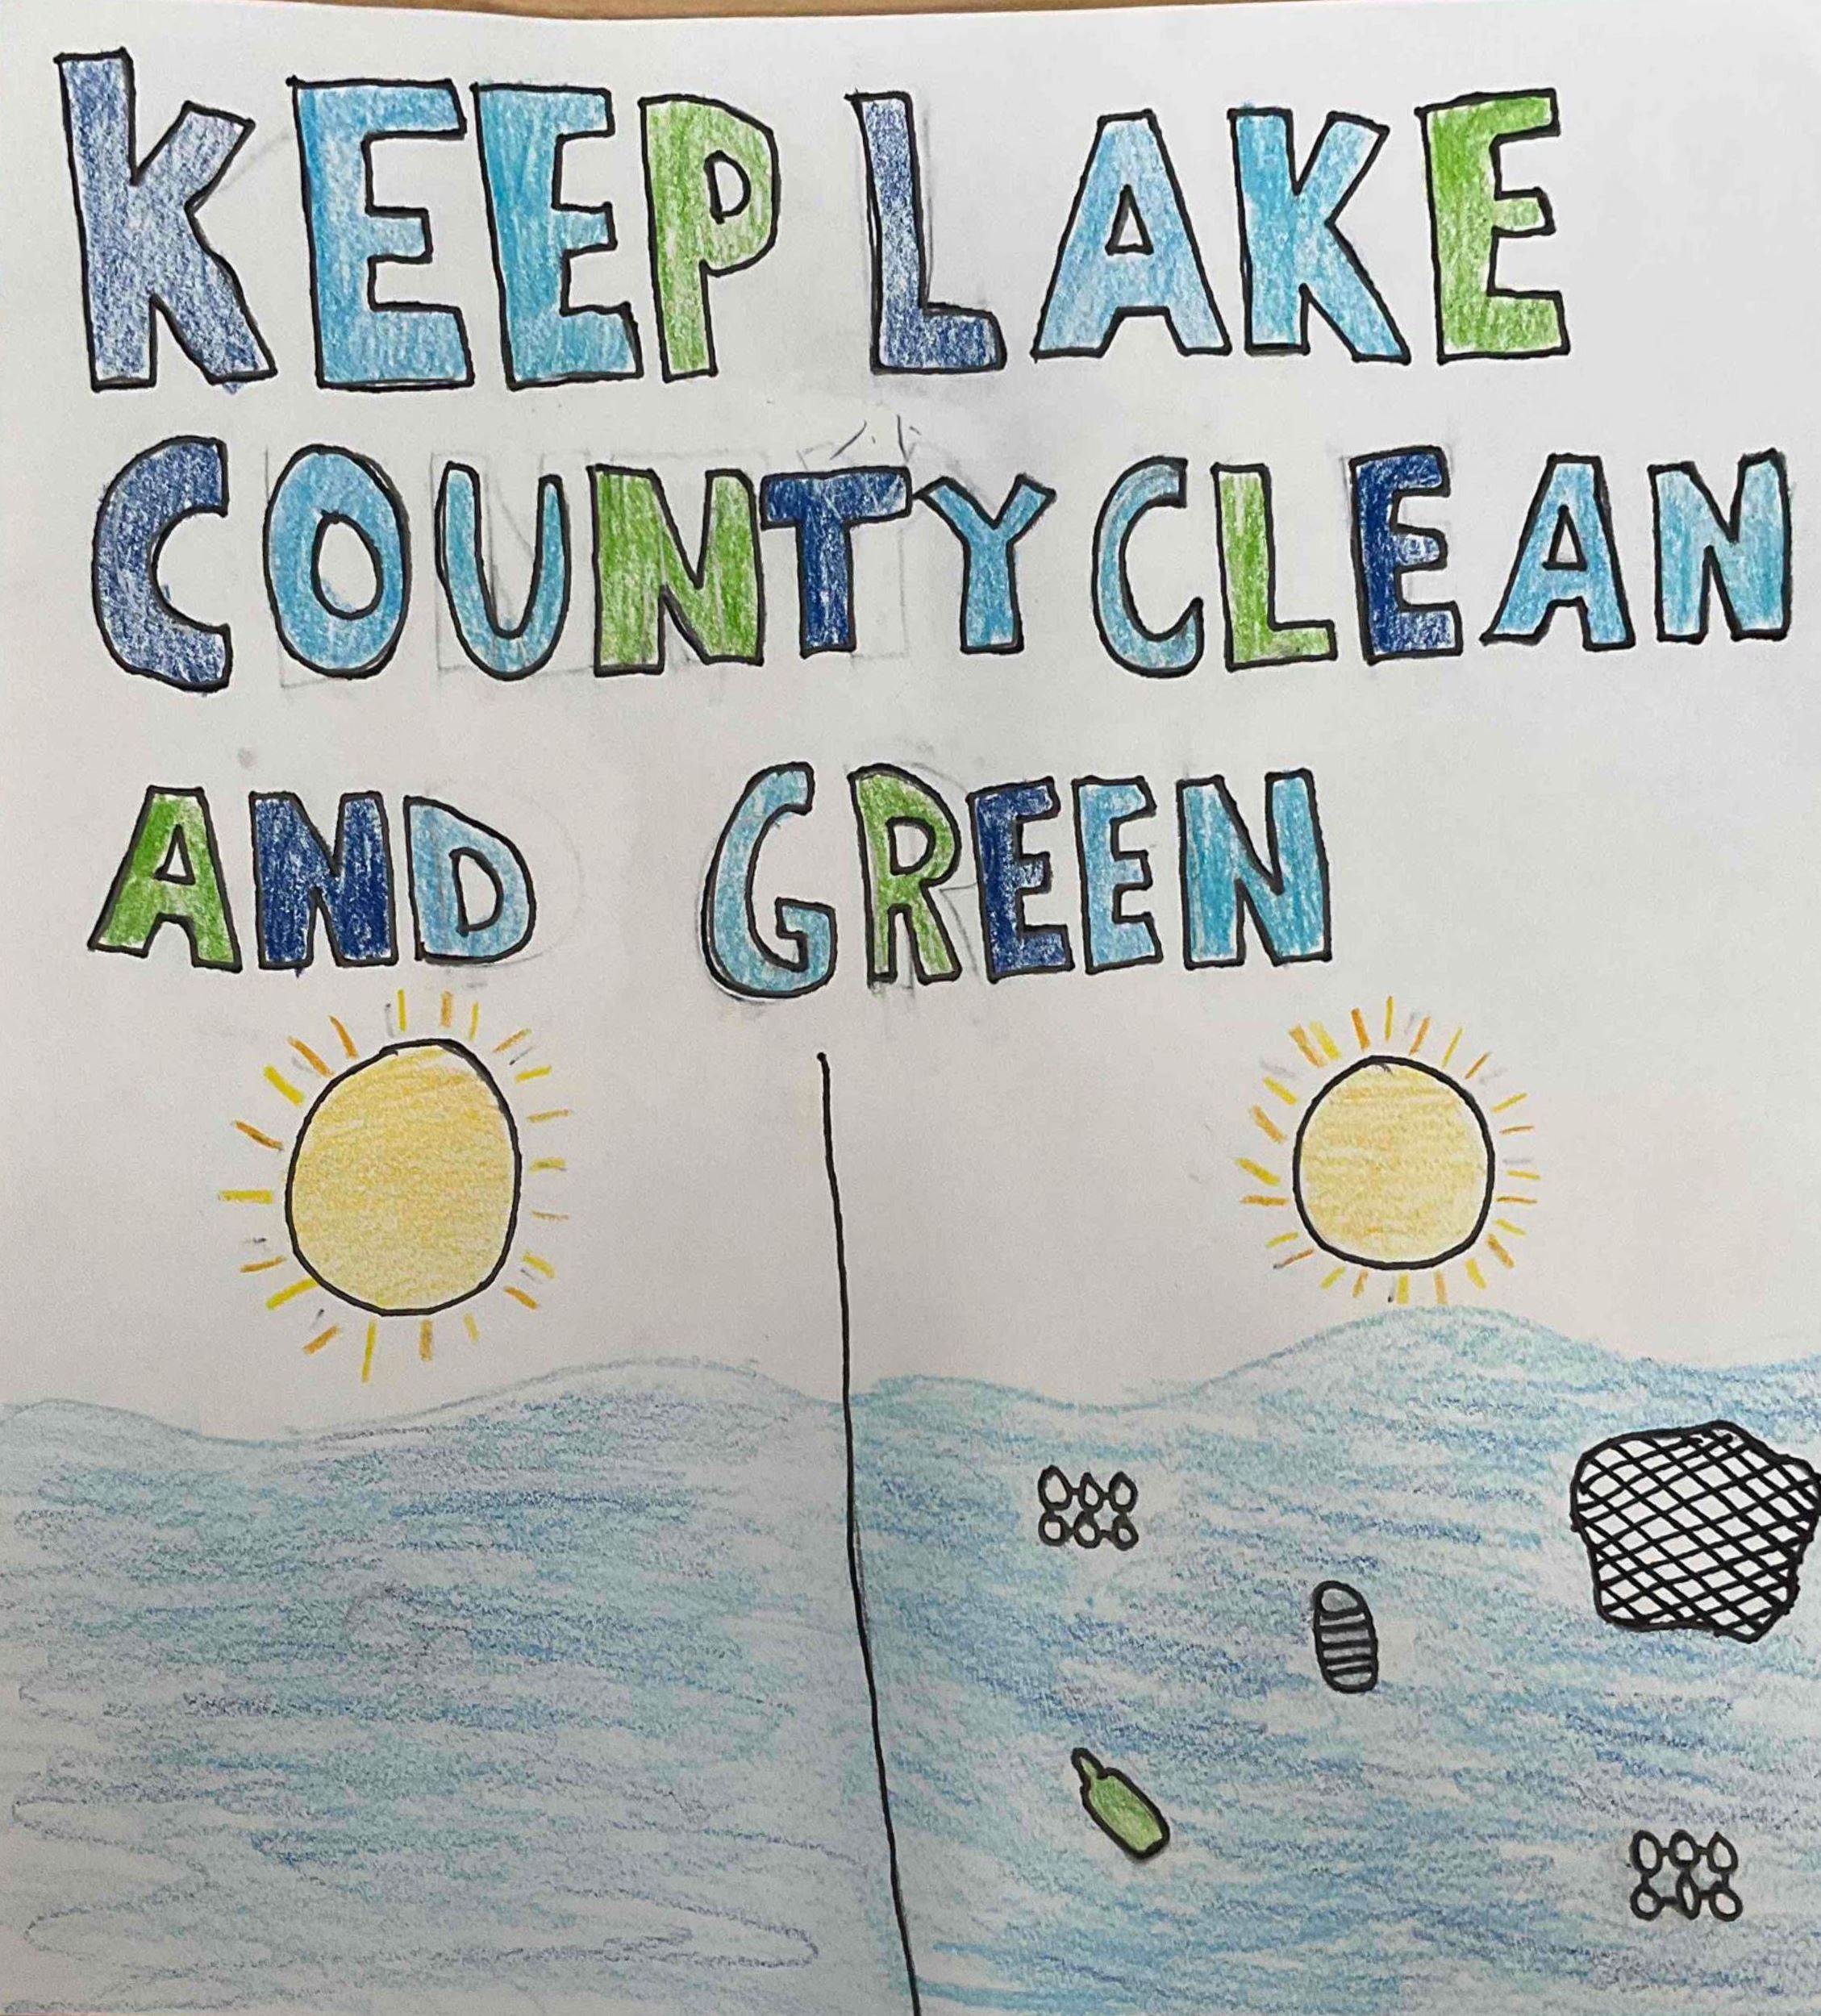 KEEP LAKE
COUNTY CLEAN
AND GREEN